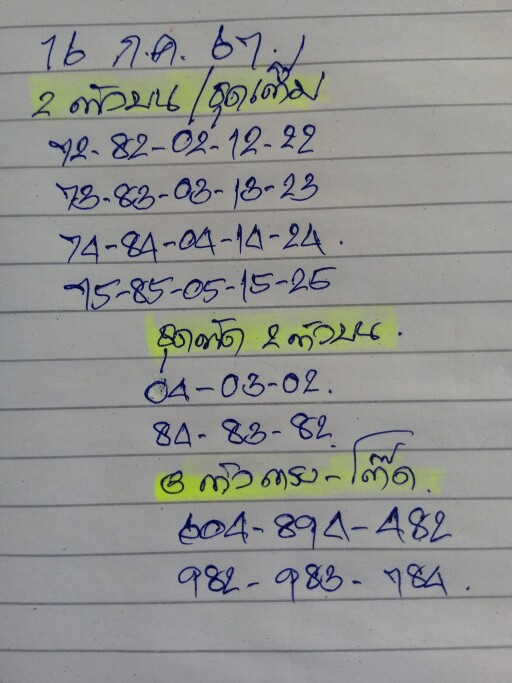 16 ก.ค. 67.
2 ตัวบน/ชุดเต็ม
72-82-02-12-22
73-83-03-13-23
74-84-04-14-24.
75-85-05-15-25
ชุดตัด 2 ตัวบน.
04-03-02.
84-83-82
3 ตัวตรง-โต๊ด.
604-894-482
982-983-784.